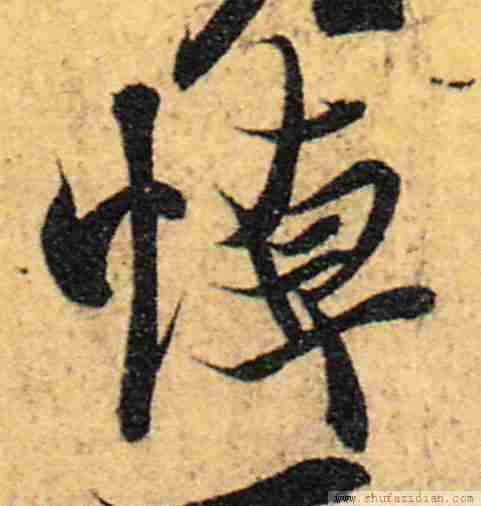 悼
www.shufazidian.com